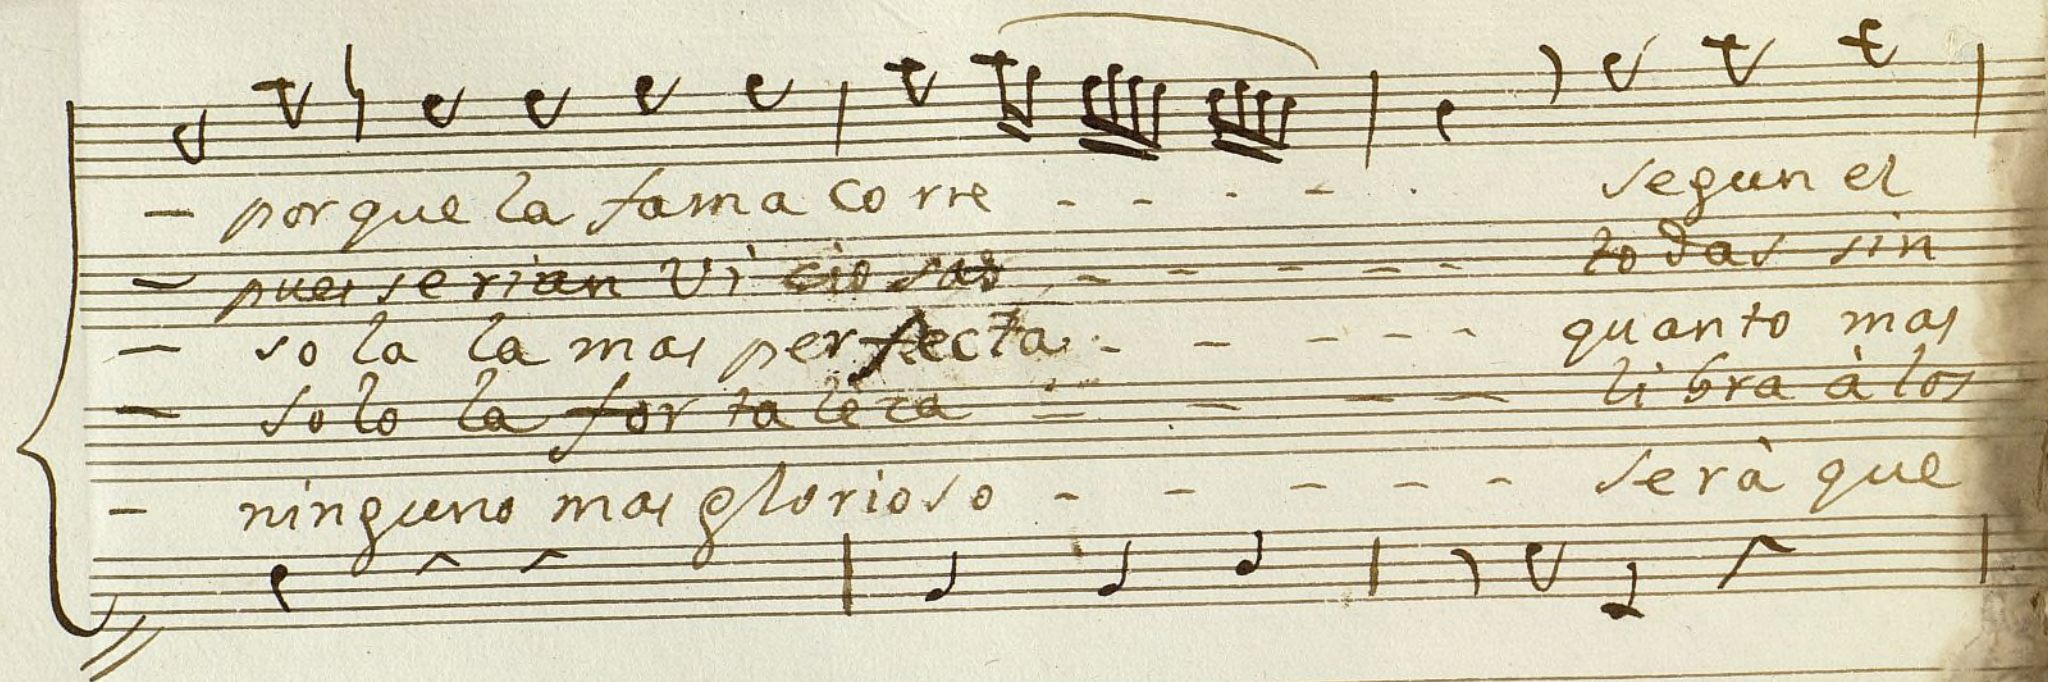 – porque la fama corre - - - - - segun el
– pues serian viciosas - - - - - todas sin
– sola la mas perfecta - - - - - quanto mas
– solo la fortaleza = - - - libra à los
- ninguno mas glorioso - - - - - serà que